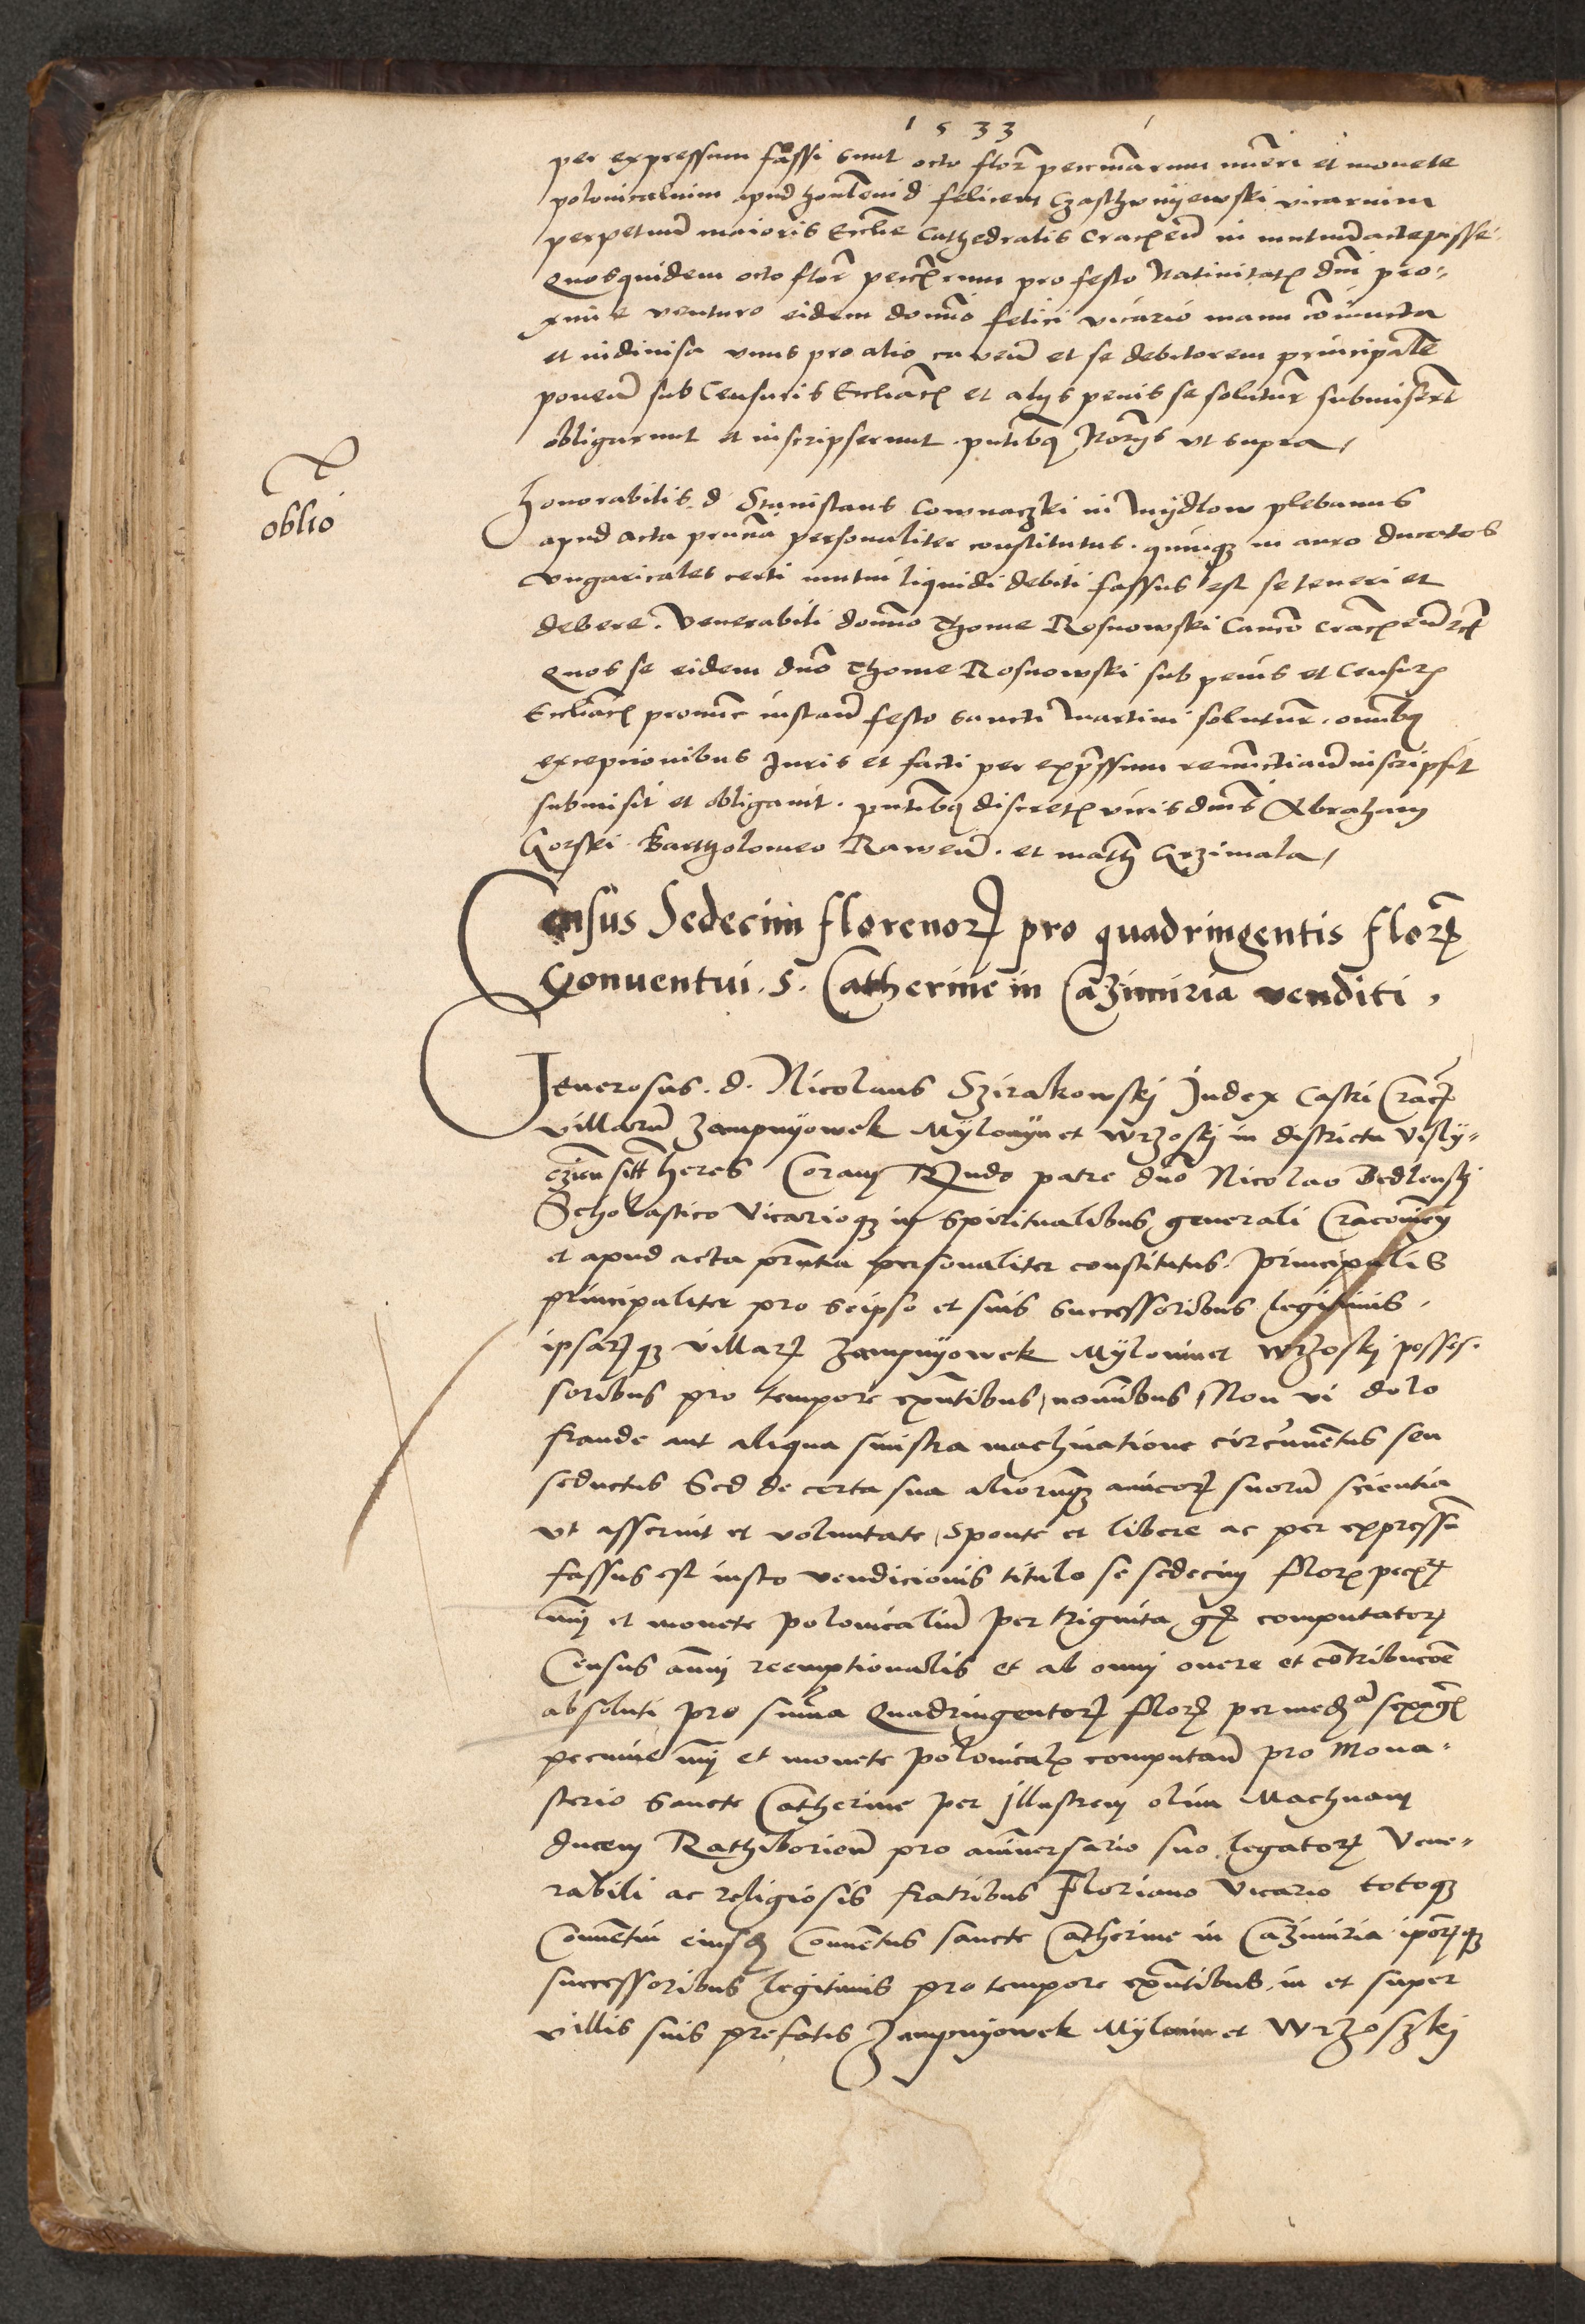 1533
per expressum fassi sunt octo florʼ pecuniarum numeri et monete
polonicalium apud honlem d felicem Czasthvnÿewski vicarium
perpetuu maioris Ecclie Cathedralis Cracxen in mutuu accepisse.
Quosquidem octo flor pecxrum pro festo Natiuitatx dni pro-
xime venturo eidem domino felici vicario manu coniuncta
et indiuisa vnus pro alio caven et se debitorem principale
ponen sub Censuris Ecclacx et alÿs penis se solutur submiserut
obligarunt et inscripserunt. pntibq Norÿs vt supra
oblio
Honorabilis d Stanislaus Cownaczki in Mÿdlow plebanus
apud acta pruncia personaliter constitutus. quinqz in auro ducatos
vngaricales certi mutui liquidi debiti fassus est se teneri et
debere. Venerabili domino Thome Rosnowski Canco Cracxen ect
Quos se eidem dno Thome Rosnowski sub penis et Censurx
Ecclacx pronunc instan festo sancti Martini solutur. omnibq
exceptionibus Juris et facti per expssum renunctian inscripsit
submisit et obligauit. pntibq discretx viris dnis Abraham
Gorski Bartholomeo Rawen. et math Grzimala
Census Sedecim florenorʒ pro quadringentis florʒ
Conuentui. S. Catherine in Cazimiria venditi.
Generosus. d. Nicolaus Szirakowskj Judex Castri Cracx
villaru Zampnÿowek Mÿlonÿn et Wrzoskj in districtu Visly-
czien sitt heres Coram Rndo patre dno Nicolao Bedlenskj
Scholastico Vicarioqz in spiritualibus generali Cracouien
et apud acta pruntia personaliter constitutus. principalis
principaliter pro seipso et suis successoribus legitimis.
ipsarʒqz villarʒ Zampnÿowek Mÿlonin et Wrzoskj posses.
soribus pro tempore exntibus, nominibus, Non vi dolo
fraude aut aliqua sinistra machinatione circuuentus seu
seductus Sed de certa sua aliorumqz amicorʒ suoru scientia
vt asseruit et voluntate, sponte et libere ac per expressu
fassus est iusto vendicionis titulo se sedecim florx pecxrʒ
nuij et monete polonicaliu per triginta gx computatorʒ
Census annuj reemptionalis et ab omnj onere et contribucoe
absoluti pro summa Quadringentorʒ florʒ per med sexagx
pecunie nuij et monete polonicalx computan pro Mona-
sterio Sancte Catherine per Jllustrem olim Machnam
ducem Rathiborien pro anniuersario suo legatorʒ Vene-
rabili ac religiosis fratribus Floriano Vicario totoqz
Conuentui eiusdʒ Conuentus sancte Catherine in Cazimiria ipsorʒqz
successoribus legitimis pro tempore exntibus, in et super
villis suis prefatis Zampnÿowek Mÿlonin et Wrzoszkj